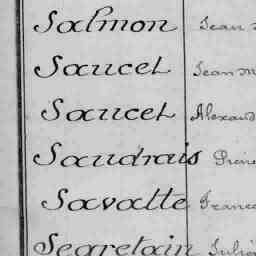 Salmon Jean
Saucet Jean M
Saucet Alexand
Saudrais Pierre
Savatte Franco
Segretain Julie